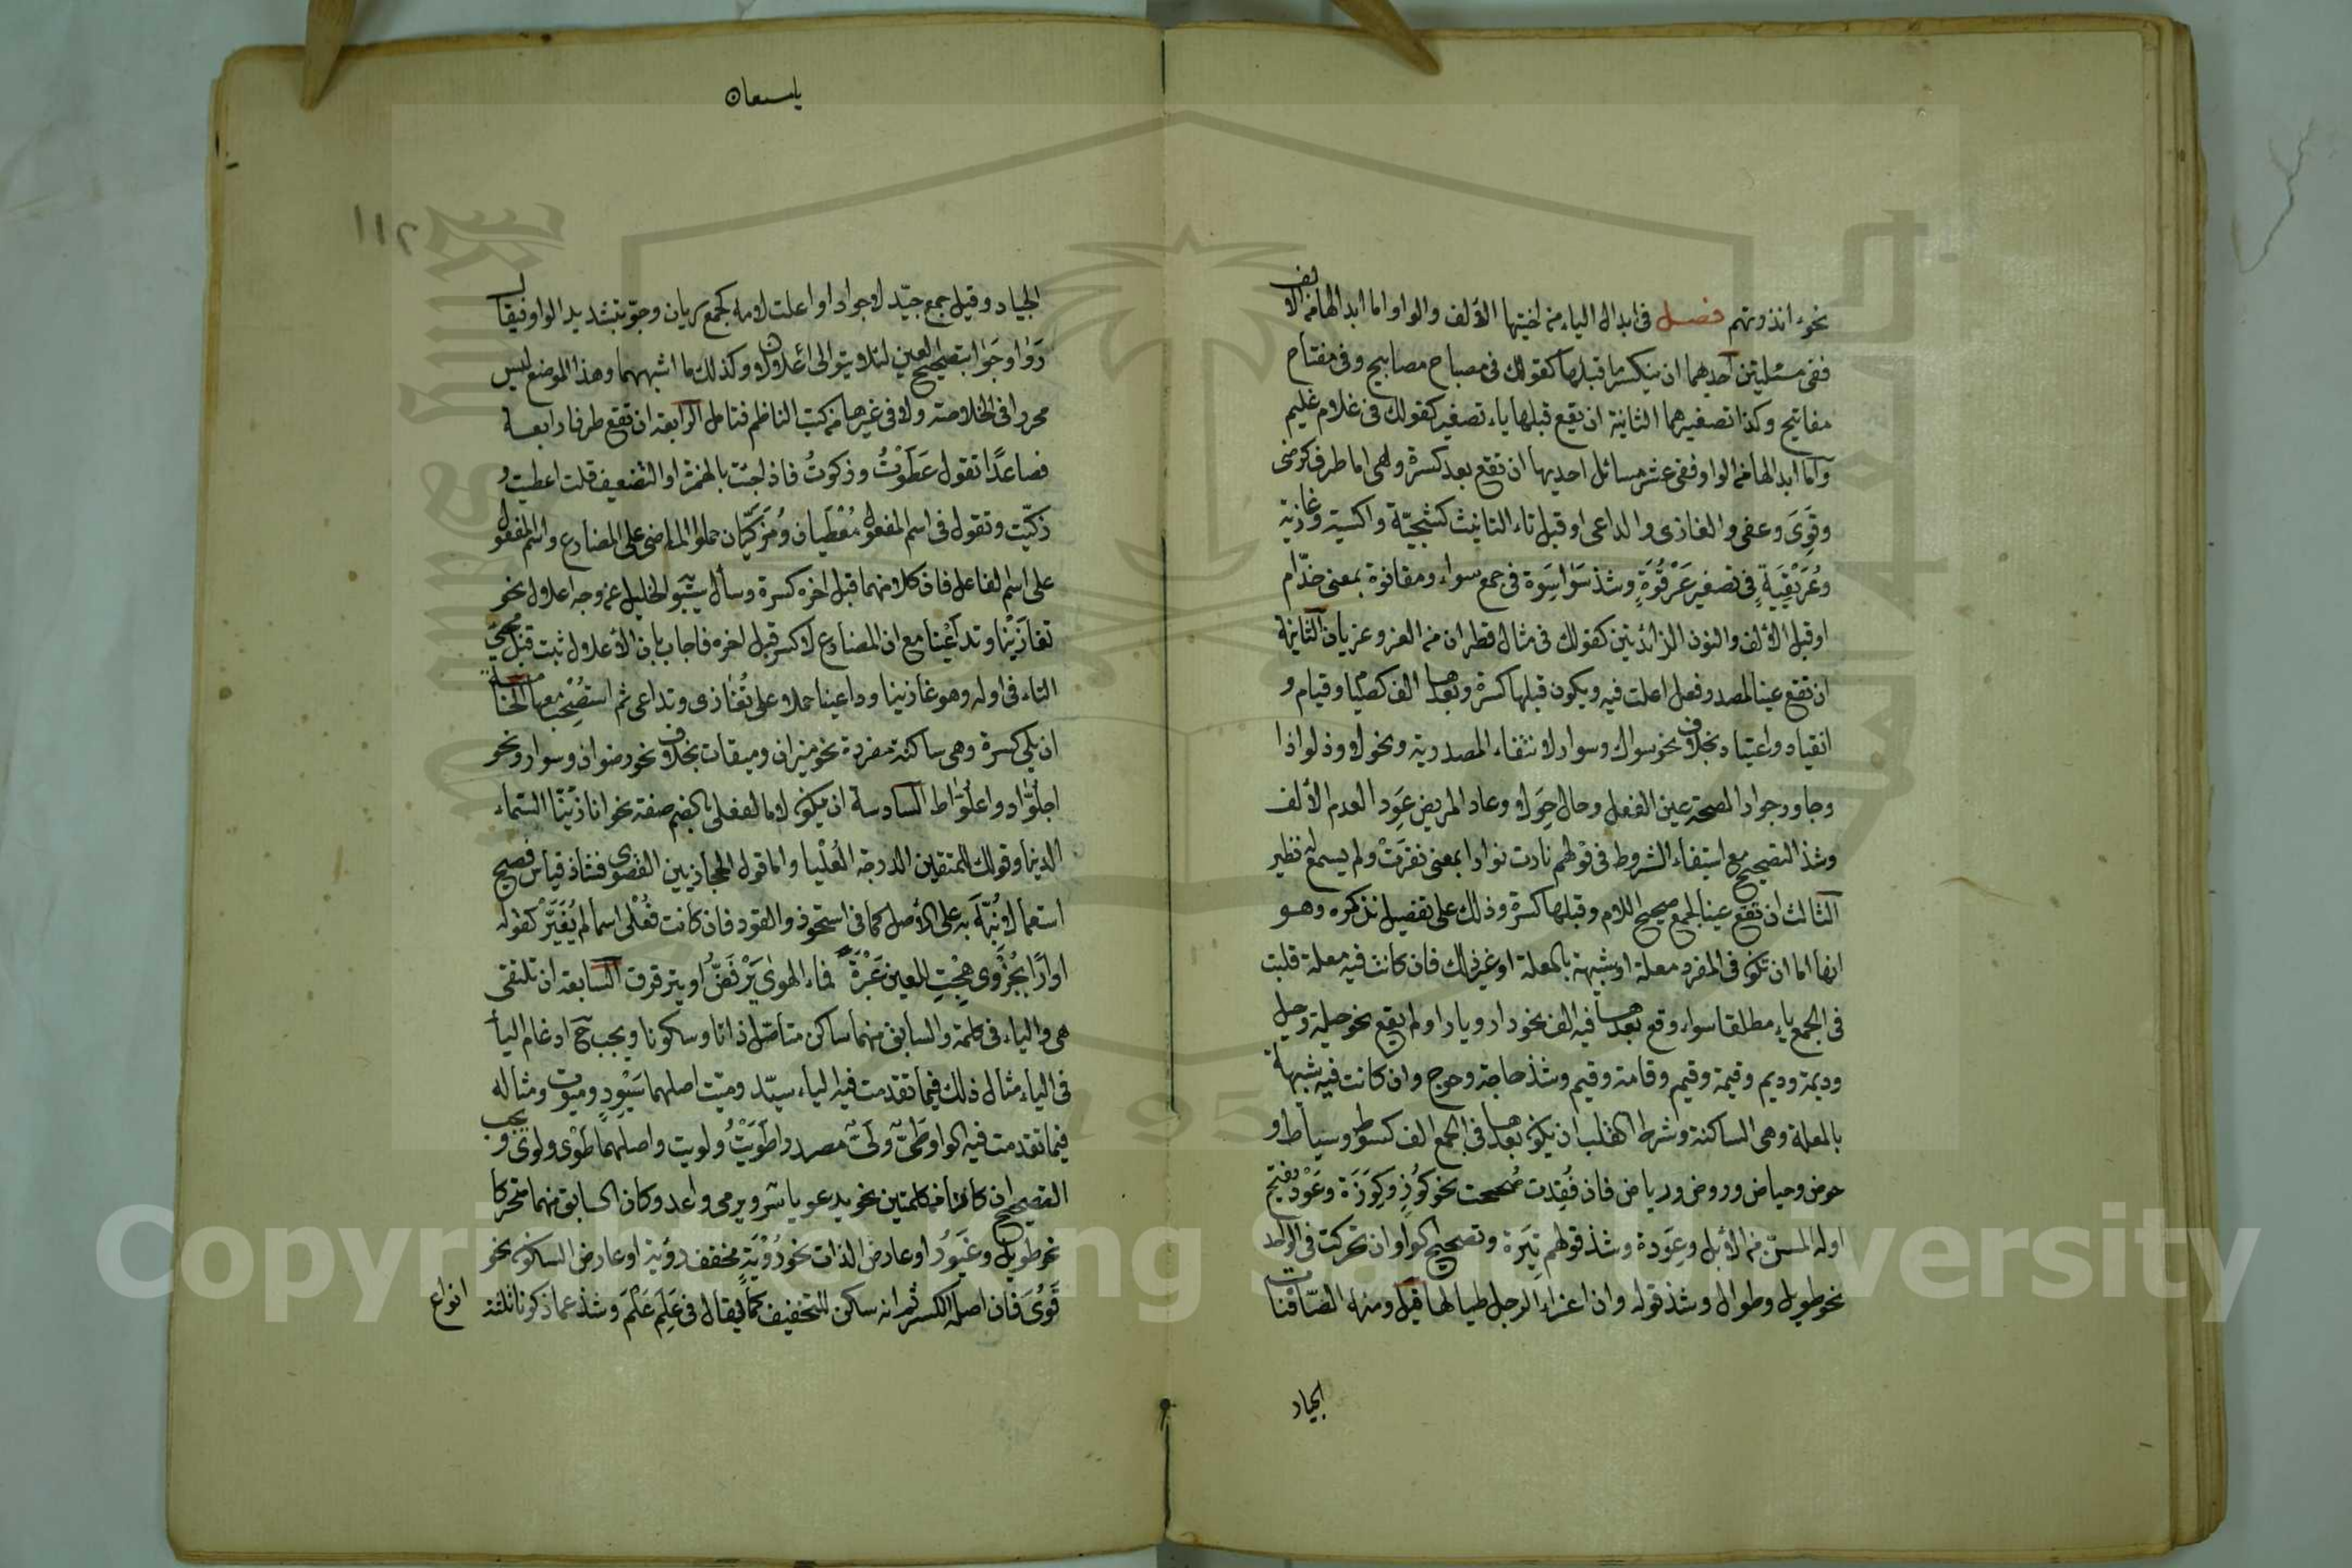 نحوء انذرتهم فصل فى ابدال الياء من اختيها الألف والواو اما ابدالها من الألف
ففى مسئلتين احديهما ان ينكسر ما قبلها كقولك فى مصباح مصابيح وفى مفتاح
مفاتيح وكذا تصغيرهما الثانية ان يقع قبلها ياء تصغير كقولك فى غلام غليم
وأما ابدالها من الواو ففى عشر مسائل احديها ان تقع بعد كسرة وهى اما طرف كرضى
وقَوِىَ وعفى والغازى والداعى او قبل تاء التانيث كشجيّة واكسية وغازية
وعُرَيْقِيَةٍ فى تصغير عَرْقُوَةٍ وشذ سَوَاسِوَة فى جمع سواء ومقاتوة بمعنى خدّام
او قبل الألف والنون الزائدتين كقولك فى مثال قطران من الغزو غزيان الثانية
ان تقع عينا لمصدر فعل اعلت فيه ويكون قبلها كسرة وبعدها الف كصيام وقيام و
انقياد واعتياد بخلاف نحو سواك وسوار لانتفاء المصدرية ونحو لاوذ لواذا
وجاور جوارا لصحة عين الفعل وحال حِوَلا وعاد المريض عِوَد العدم الألف
وشذ التصحيح مع استيفاء الشروط فى قولهم نارت نوارا بمعنى نفرَتْ ولم يسمع له نظير
الثالث ان تقع عينا لجمع صحيح اللام وقبلها كسرة وذلك على تفصيل نذكره وهو
انها اما ان تكون فى المفرد معلة او شبيهة بالمعلة او غير ذلك فان كانت فيه معلة قلبت
فى الجمع ياء مطلقا سواء وقع بعدها فيه الف نحو دار وديارا ولم يقع نحو حيلة وحيل
وديمة وديم وقيمة وقيم وقامة وقيم وشذ حاجة وحوج وان كانت فيه شبيهة
بالمعلة وهى الساكنة وشرط القلب ان يكون بعدها فى الجمع الف كسوط وسياط و
حوض وحياض وروض ورياض فان فُقِدت صُححت نحو كُوزٍ وكِوَزَة وعَوْد بفتح
اوله المسنّ من الأبل وعِوَدة وشذ قولهم ثِيَرة وتصحيح الواو ان تحركت فى الواحد
نحو طويل وطوال وشذ قوله وان اعزاء الرجل طيالها قيل ومنه الصّافنات
الجياد
يا سبحان
١١٢
الجياد وقيل جمع جيّد لا جواد او اعلت لامه كجمع ريان وجوّ بتشديد الواو فيقال
رَوَا وجَوَا بتصحيح العين لئلا يتوالى اعلالان وكذلك ما اشبههما وهذا الموضع ليس
محررا فى الخلاصة ولا فى غيرها من كتب الناظم فتامل الرابعة ان تقع طرفا رابعة
فصاعدًا تقول عَطَوْتُ وزكوتُ فاذا جئت بالهمزة او التضعيف قلت اعطيت و
زكّيت وتقول فى اسم المفعول مُعْطَيان ومُزَكَّيان حملوا الماضى على المضارع واسم المفعول
على اسم الفاعل فان كلا منهما قبل اخره كسرة وسأل سيبويه الخليل عن وجه اعلال نحو
تغازَيْنا وتداعَيْنا مع ان المضارع لا كسر قبل اخره فاجاب بان الأعلال ثبت قبل مجئ
التاء فى اوله وهو غازينا وداعينا حملا على نُغَازى ونداعى ثم استُصْحِب معها الخامسة
ان يلى كسرة وهى ساكنة مفردة نحو ميزان وميقات بخلاف نحو صوان وسوار ونحو
اجلوّاد واعلوّاط السادسة ان يكون لاما لفعلى بالضم صفة نحو انا زينّا السماء
الدنيا وقولك للمتقين الدرجة العُلْيا واما قول الحجازيين القصوى فشاذ قياس فصيح
استعمالا نُبِّهَ به على الأصل كما فى استحوذ والقود فان كانت فُعْلى اسما لم يُغَيَّرْ كقوله
ادارًا بحُزْوى هِجْتِ للعين عَبْرَةً فماء الهوى يَرْفَضُّ او يترقرق السابعة ان تلتقى
هى والياء فى كلمة والسابق منهما ساكن متاصّل ذاتا وسكونا ويجب ح ادغام اليأ
فى الياء مثال ذلك فيما تقدمت فيه الياء سيّد وميّت اصلهما سَيْوِد وميوت ومثاله
فيما تقدمت فيه الواو طَىٌّ ولَىٌّ مصدرا طَوَيْتُ ولويت واصلهما طَوْى ولوى ويجب
التصحيح ان كانتا من كلمتين نحو يدعو ياسر ويرمى واعد وكان السابق منهما متحركا
نحو طويل وغيور او عارض الذات نحو رُوْيَةٍ مخفف رؤية او عارض السكون نحو
قَوْىَ فان اصله الكسر ثم انه سكن للتخفيف كما يقال فى عَلِمَ عَلْمَ وشذ عما ذكرنا ثلثة
انواع
Copyright © King Saud University